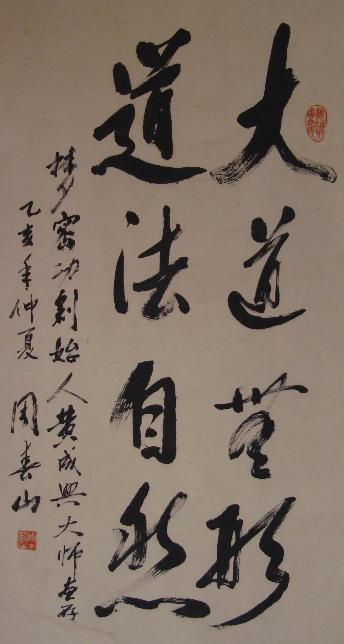 大道無形
道法自然
梦密功創始人黄成興大师惠存
乙亥年仲夏
周春山